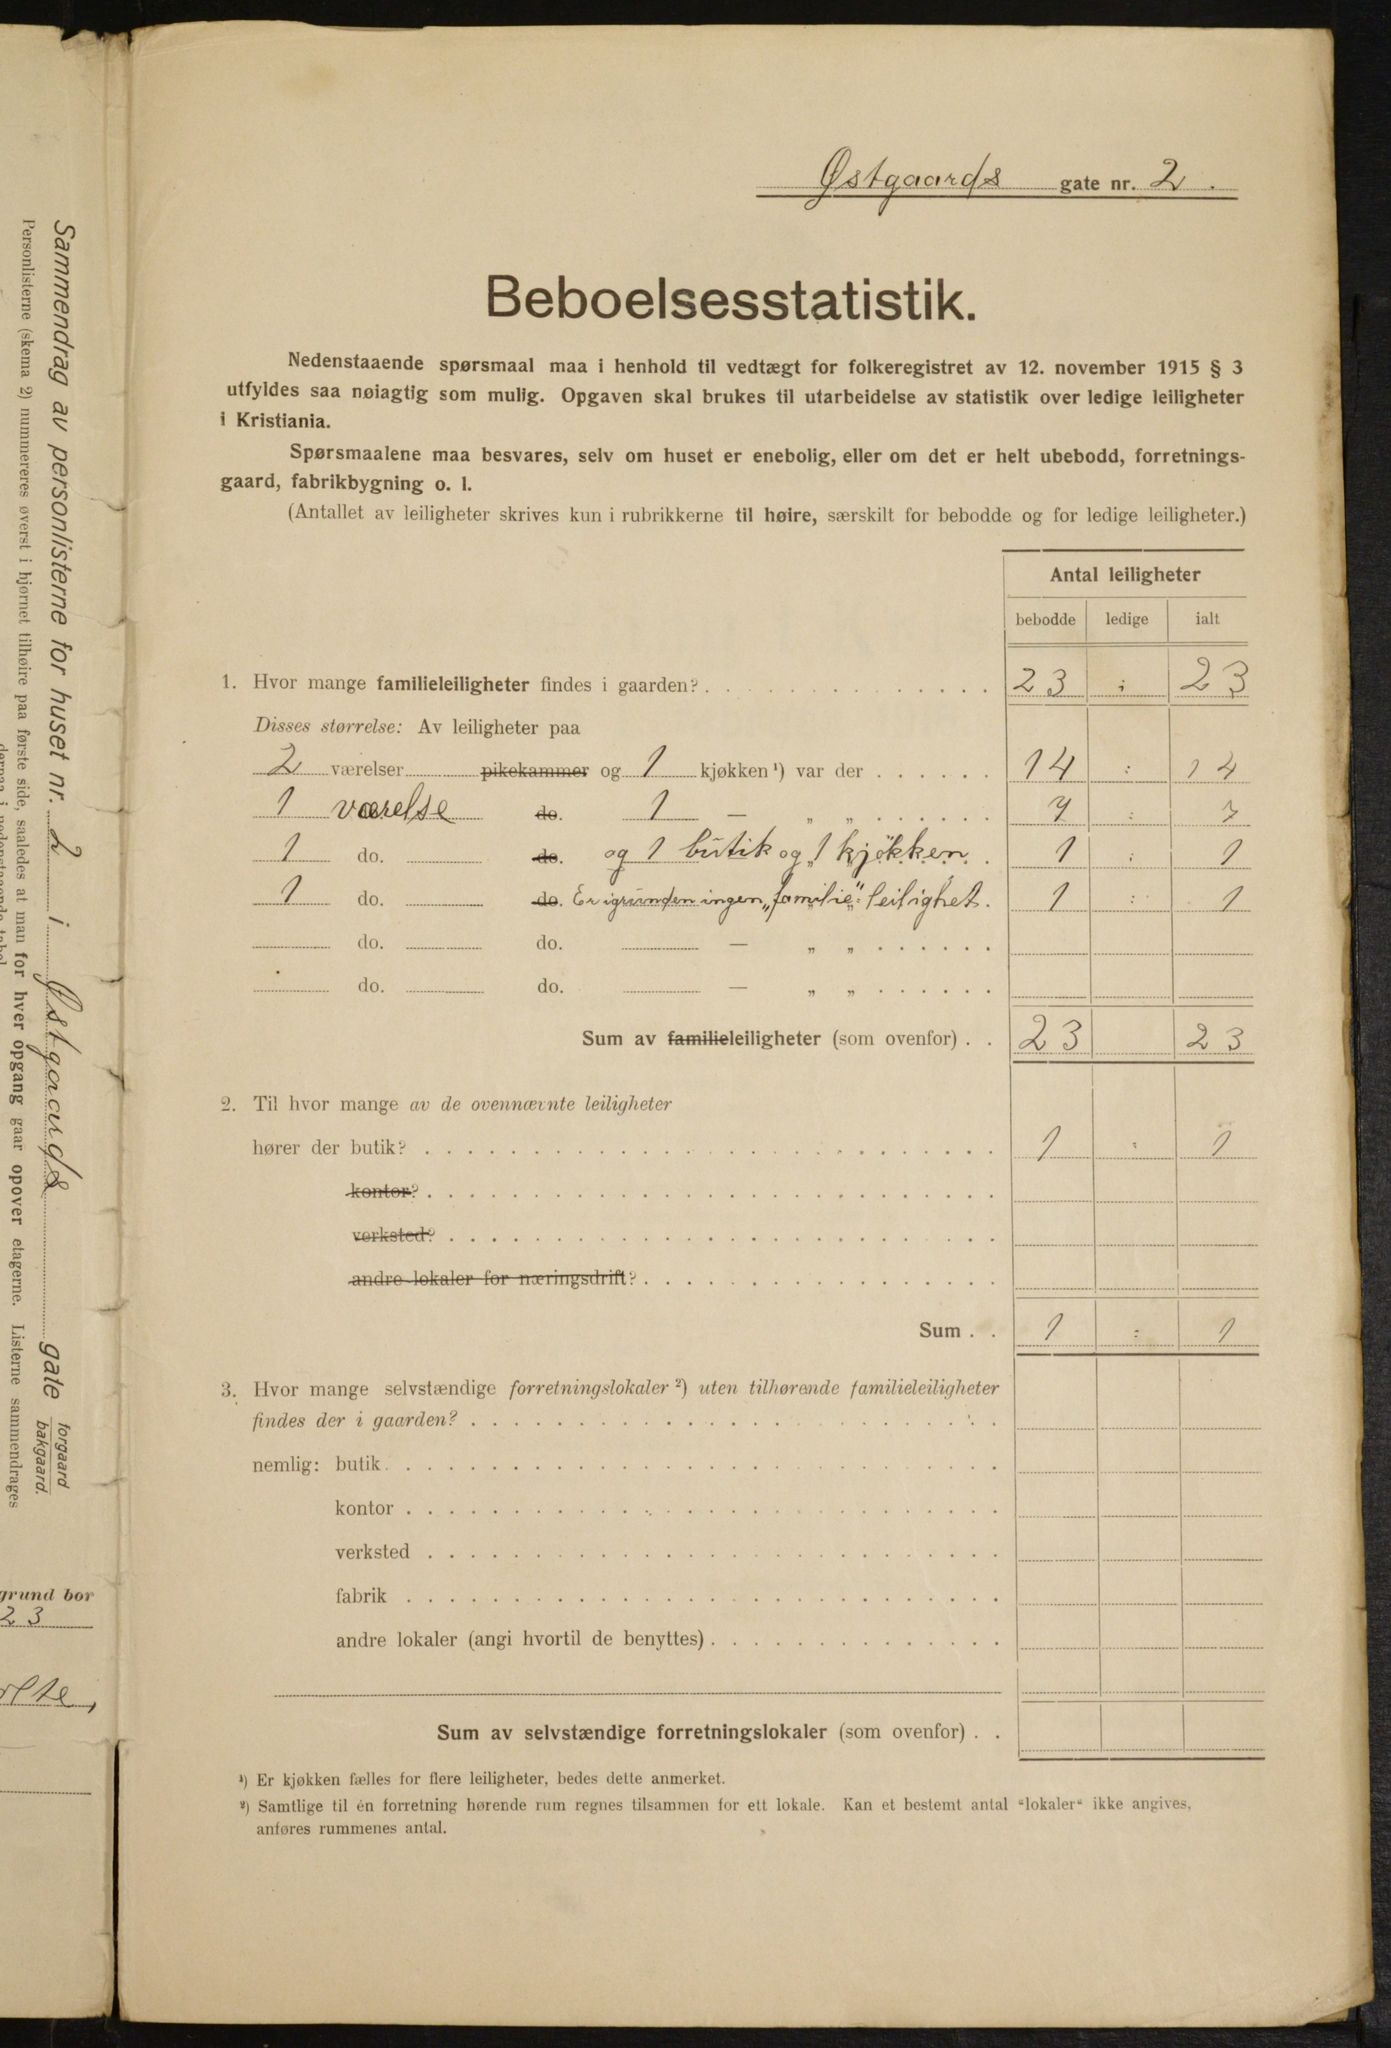 Østgaards gate nr. 2.
Beboelsesstatistik.
Nedenstaaende spørsmaal maa i henhold til vedtægt for folkeregistret av 12. november 1915 § 3
utfyldes saa nøiagtig som mulig. Opgaven skal brukes til utarbeidelse av statistik over ledige leiligheter
i Kristiania.
Spørsmaalene maa besvares, selv om huset er enebolig, eller om det er helt ubebodd, forretnings-
gaard, fabrikbygning o. l.
(Antallet av leiligheter skrives kun i rubrikkerne til høire, særskilt for bebodde og for ledige leiligheter.)
Antal leiligheter
bebodde ledige ialt
1. Hvor mange familieleiligheter findes i gaarden? 23 : 23
Disses størrelse: Av leiligheter paa
2 værelser pikekammer og 1 kjøkken ¹) var der 14 : 14
1 værelse do. 1 — „ „ 7 : 7
1 do. do. og 1 butik og 1 kjøkken. 1 : 1
1 do. do. Er igrunden ingen „familie“ leilighet. 1 : 1
do. do. — „ „
do. do. — „ „
Sum av familieleiligheter (som ovenfor) 23 23
2. Til hvor mange av de ovennævnte leiligheter
hører der butik? 1 : 1
kontor?
verksted?
andre lokaler for næringsdrift?
Sum 1 : 1
3. Hvor mange selvstændige forretningslokaler ²) uten tilhørende familieleiligheter
findes der i gaarden?
nemlig: butik
kontor
verksted
fabrik
andre lokaler (angi hvortil de benyttes)
Sum av selvstændige forretningslokaler (som ovenfor)
¹) Er kjøkken fælles for flere leiligheter, bedes dette anmerket.
²) Samtlige til én forretning hørende rum regnes tilsammen for ett lokale. Kan et bestemt antal “lokaler“ ikke angives,
anføres rummenes antal.
Sammendrag av personlisterne for huset nr. 2 i Østgaards gate forgaard bakgaard.
Personlisterne (skema 2) nummereres øverst i hjørnet tilhøire paa første side, saaledes at man for hver opgang gaar opover etagerne. Listerne sammendrages
grund bor
23